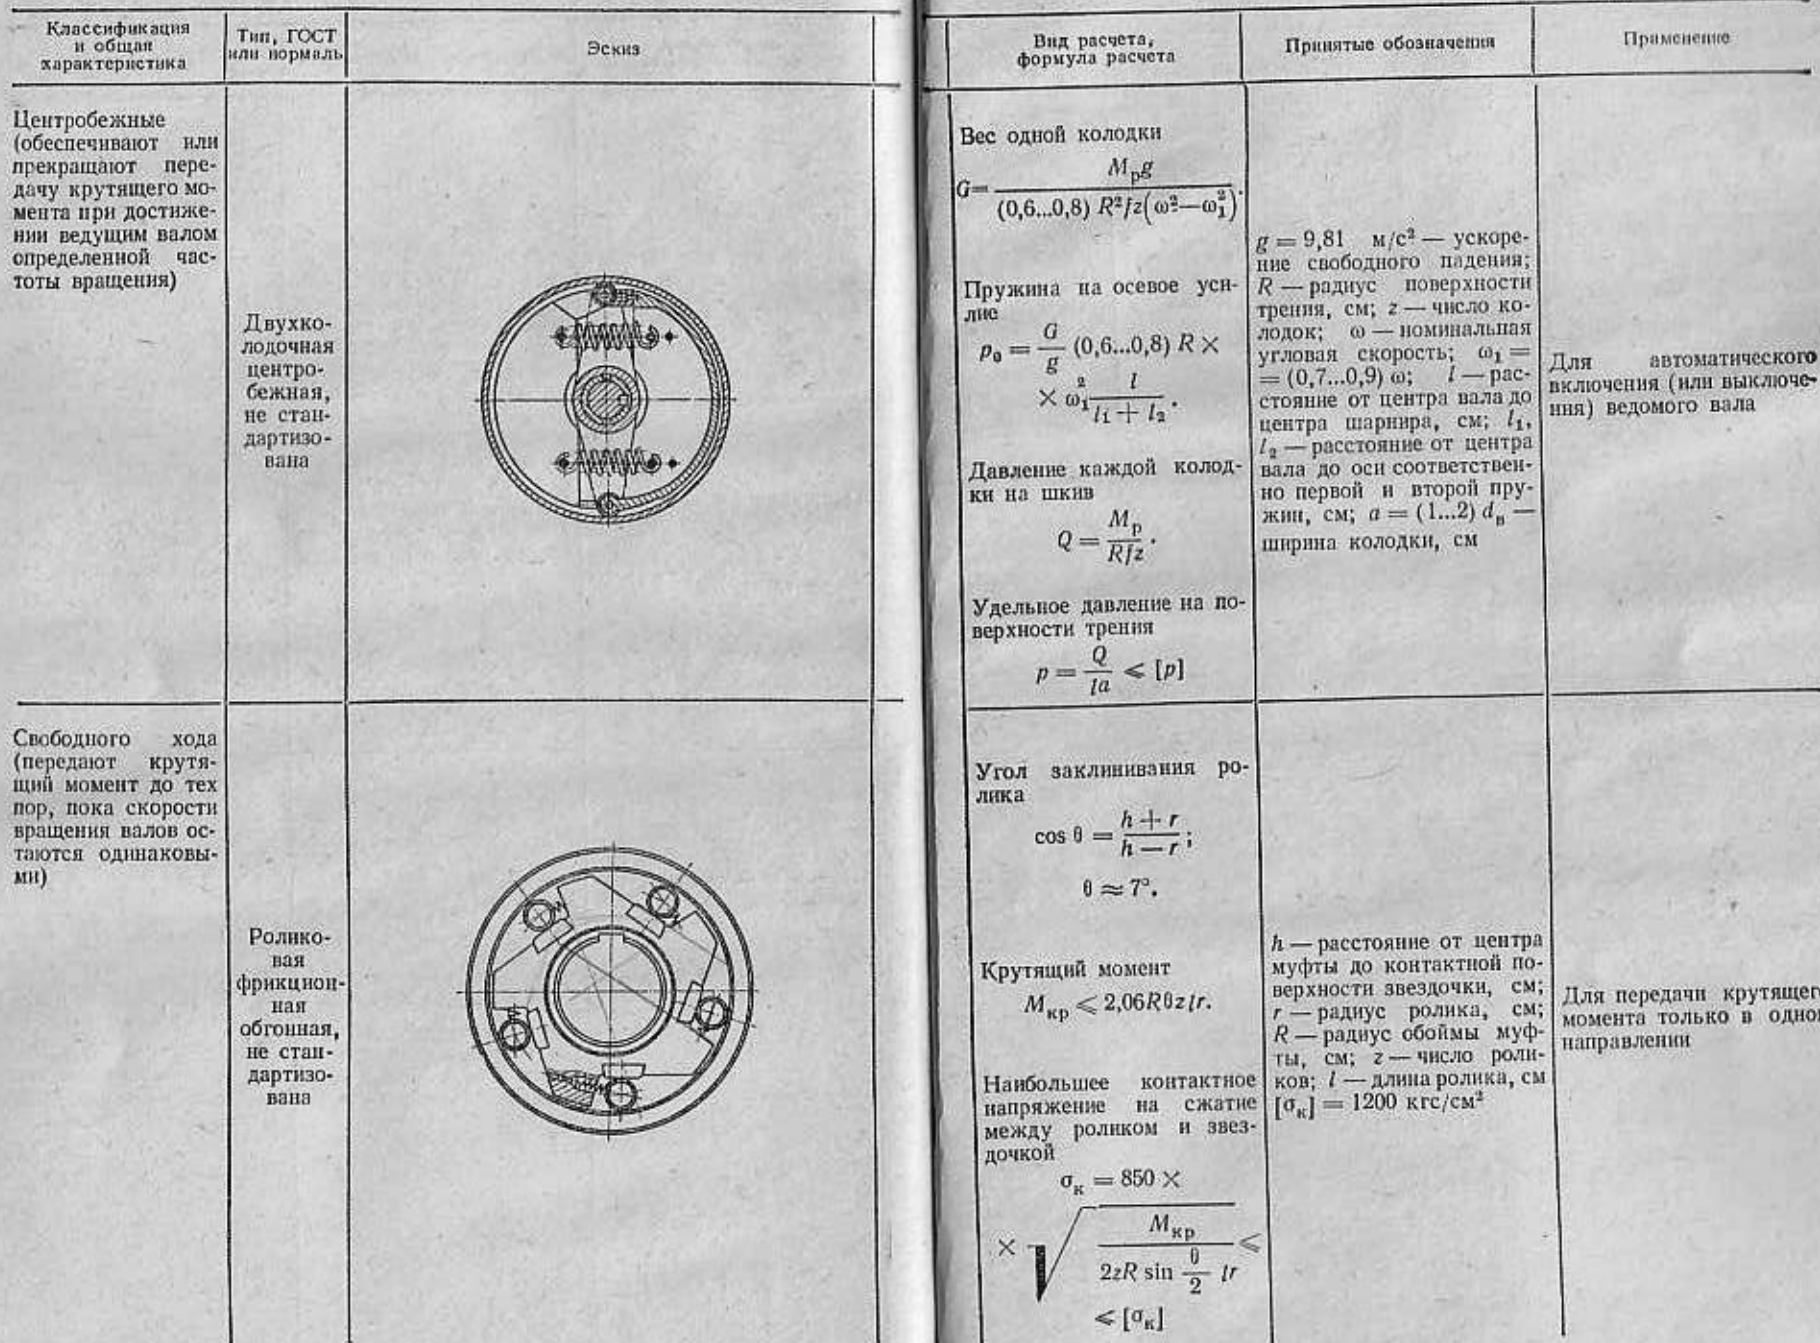 Классификация
и общая
характеристика
Тип, ГОСТ
или нормаль
Эскиз
Вид расчета,
формула расчета
Принятые обозначения
Применение
Центробежные
(обеспечивают или
прекращают пере-
дачу крутящего мо-
мента при достиже-
нии ведущим валом
определенной час-
тоты вращения)
Двухко-
лодочная
центро-
бежная,
не стан-
дартизо-
вана
Вес одной колодки
G = M_р g / (0,6...0,8) R² f z (ω² — ω₁²).
Пружина на осевое уси-
лие
p₀ = G / g (0,6...0,8) R ×
× ω₁² l / l₁ + l₂ .
Давление каждой колод-
ки на шкив
Q = M_р / Rfz .
Удельное давление на по-
верхности трения
p = Q / la ⩽ [p]
g = 9,81 м/с² — ускоре-
ние свободного падения;
R — радиус поверхности
трения, см; z — число ко-
лодок; ω — номинальная
угловая скорость; ω₁ =
= (0,7...0,9) ω; l — рас-
стояние от центра вала до
центра шарнира, см; l₁,
l₂ — расстояние от центра
вала до оси соответствен-
но первой и второй пру-
жин, см; a = (1...2) d_в —
ширина колодки, см
Для автоматического
включения (или выключе-
ния) ведомого вала
Свободного хода
(передают крутя-
щий момент до тех
пор, пока скорости
вращения валов ос-
таются одинаковы-
ми)
Ролико-
вая
фрикцион-
ная
обгонная,
не стан-
дартизо-
вана
Угол заклинивания ро-
лика
cos θ = h + r / h — r ;
θ ≈ 7°.
Крутящий момент
M_кр ⩽ 2,06Rθzlr.
Наибольшее контактное
напряжение на сжатие
между роликом и звез-
дочкой
σ_к = 850 ×
× √ M_кр / 2zR sin θ/2 lr ⩽
⩽ [σ_к]
h — расстояние от центра
муфты до контактной по-
верхности звездочки, см;
r — радиус ролика, см;
R — радиус обоймы муф-
ты, см; z — число роли-
ков; l — длина ролика, см
[σ_к] = 1200 кгс/см²
Для передачи крутящег
момента только в одно
направлении